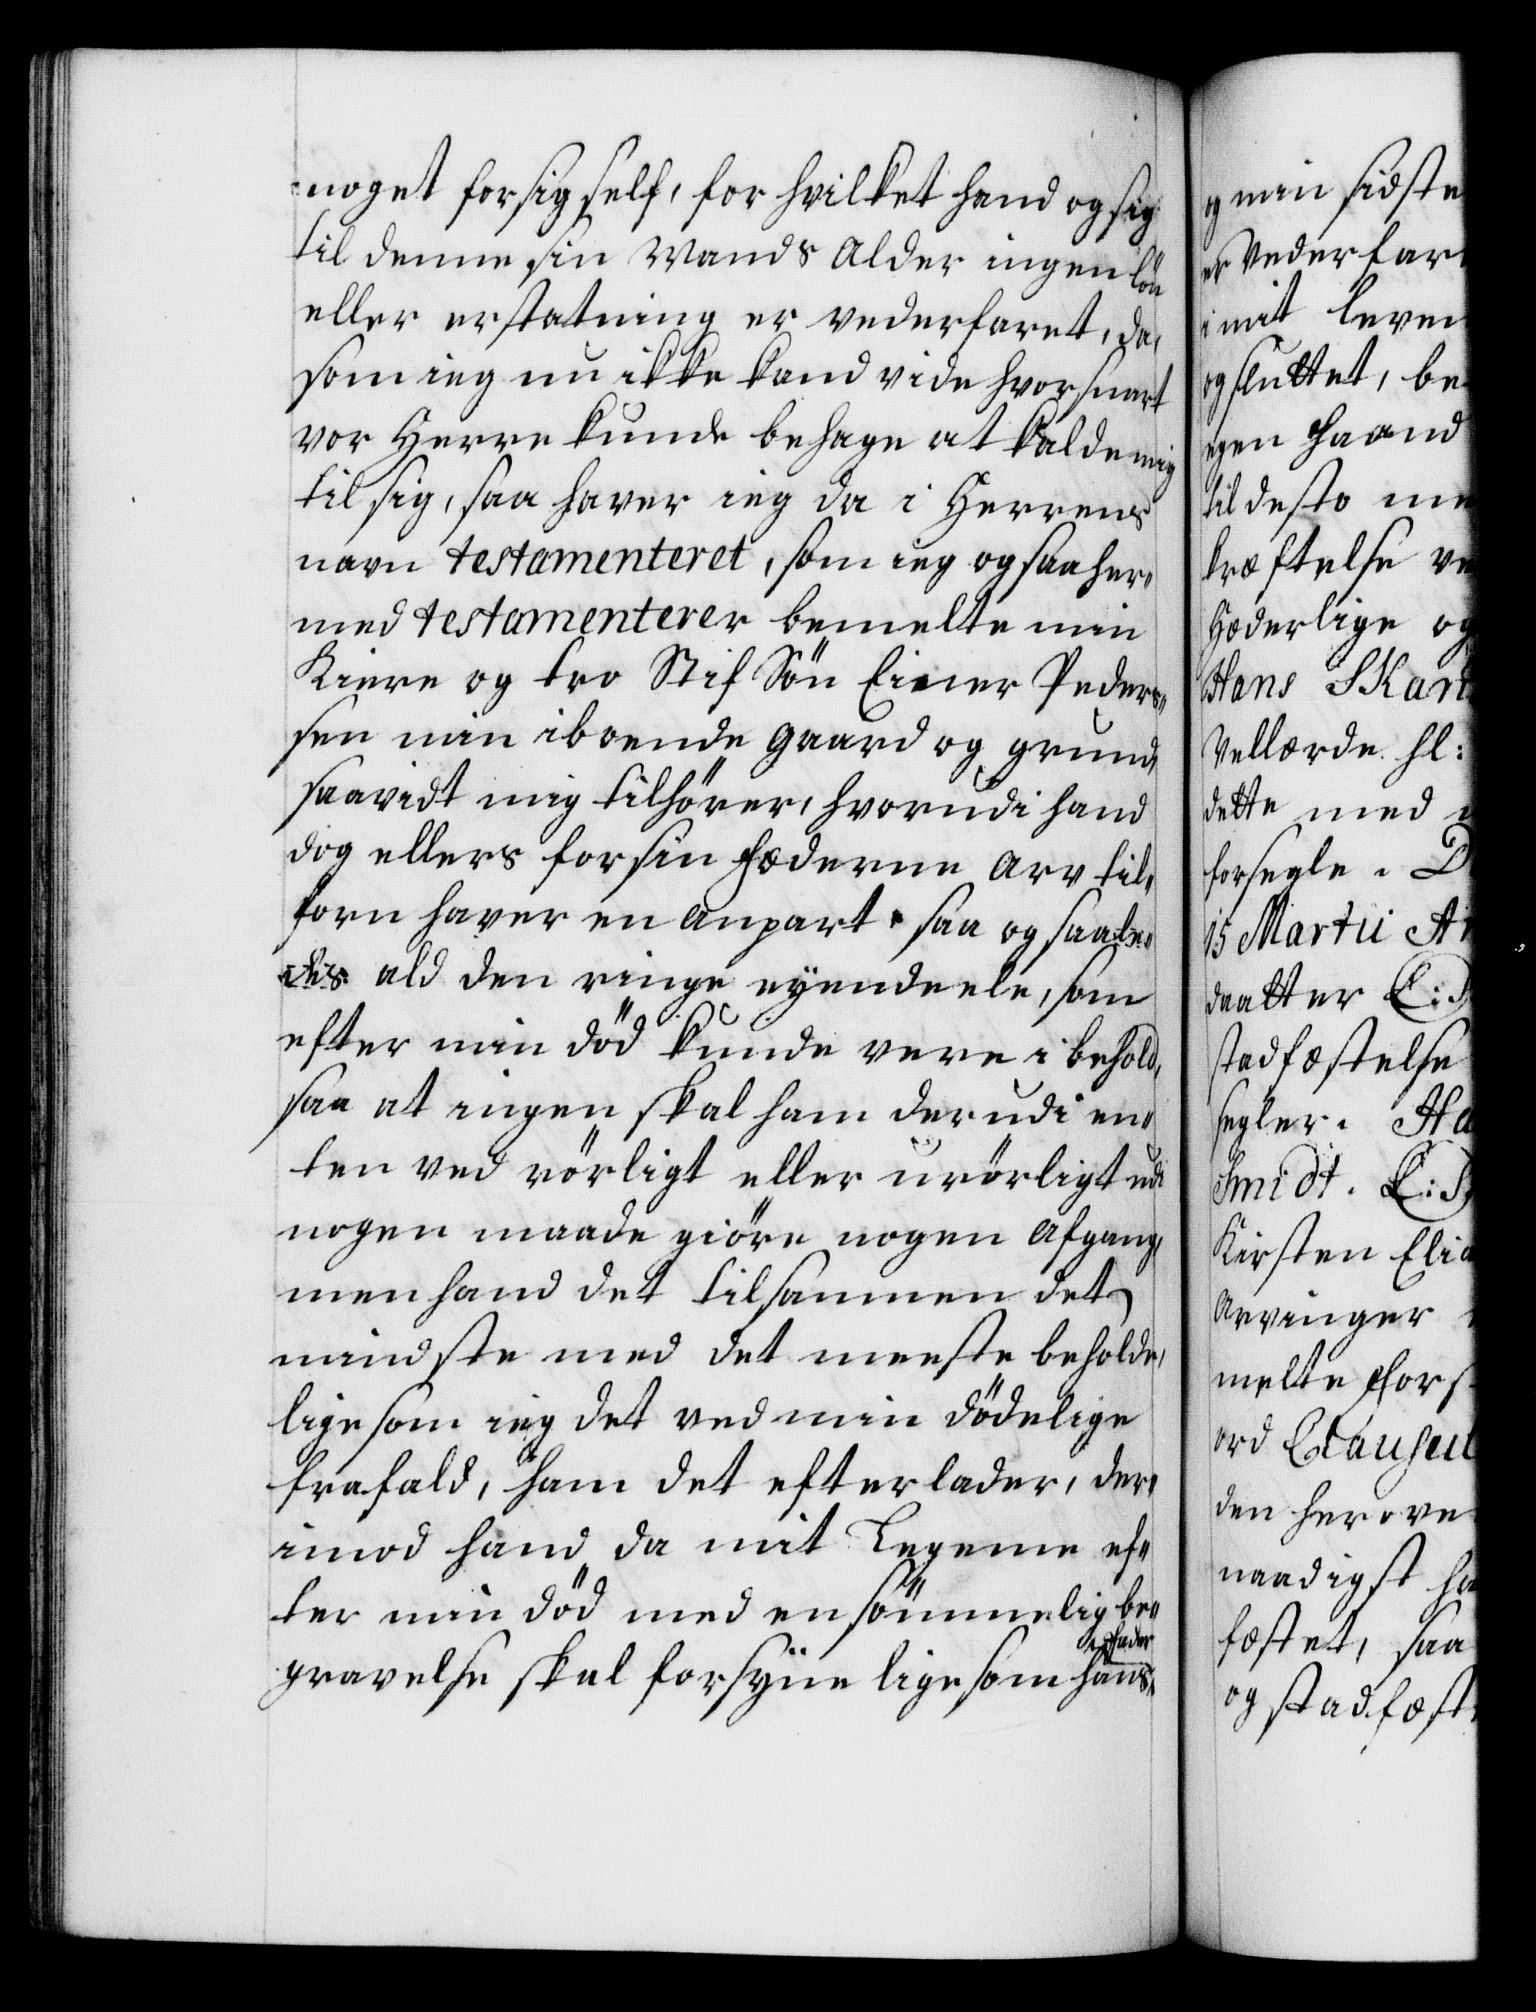 noget for sig self, for hvilket hand og sig
til denne sin Mands Alder ingen lön
eller erstatning er vederfaret, da,
som ieg nu ikke kand vide hvor snart
vor Herre kunde behage at kalde mig
til sig, saa haver ieg da i Herrens
navn testamenteret, som ieg og saa her„
med testamenterer bemelte min
Kiere og tro Stif Sön Einer Peders„
sen min iboende gaard og grund,
saavidt mig tilhörer, hvorudi hand
dog ellers for sin Fæderne Arv til„
forn haver en anpart, saa og saale„
des ald den ringe eyendeele, som
efter min död kunde vere i behold,
saa at ingen skal ham derudi en„
ten ved rörligt eller urörligt udi
nogen maade giöre nogen Afgang,
men hand det tilsammen det
mindste med det meeste beholde,
lige som ieg det ved min dödelige
frafald, ham det efterlader, der„
imod hand da mit Legeme ef„
ter min död med en sömmelig be„
gravelse skal forsyne lige som hans
Fader
og min sidste
er Vederfar
i mit leven
og sluttet, be
egen Haand
til desto me
kræftelse ve
Hæderlige og
Hans SKart
Vellærde hl:
dette med
forsegle. D
15 Martii A
daatter L:S
stadfæstelse
segler. Ha
Smidt. L:S
Kirsten Elia
Arvinger
melte Fors
ord Clausul
den her ove
naadigst ha
fæstet, saa
og stadfæst